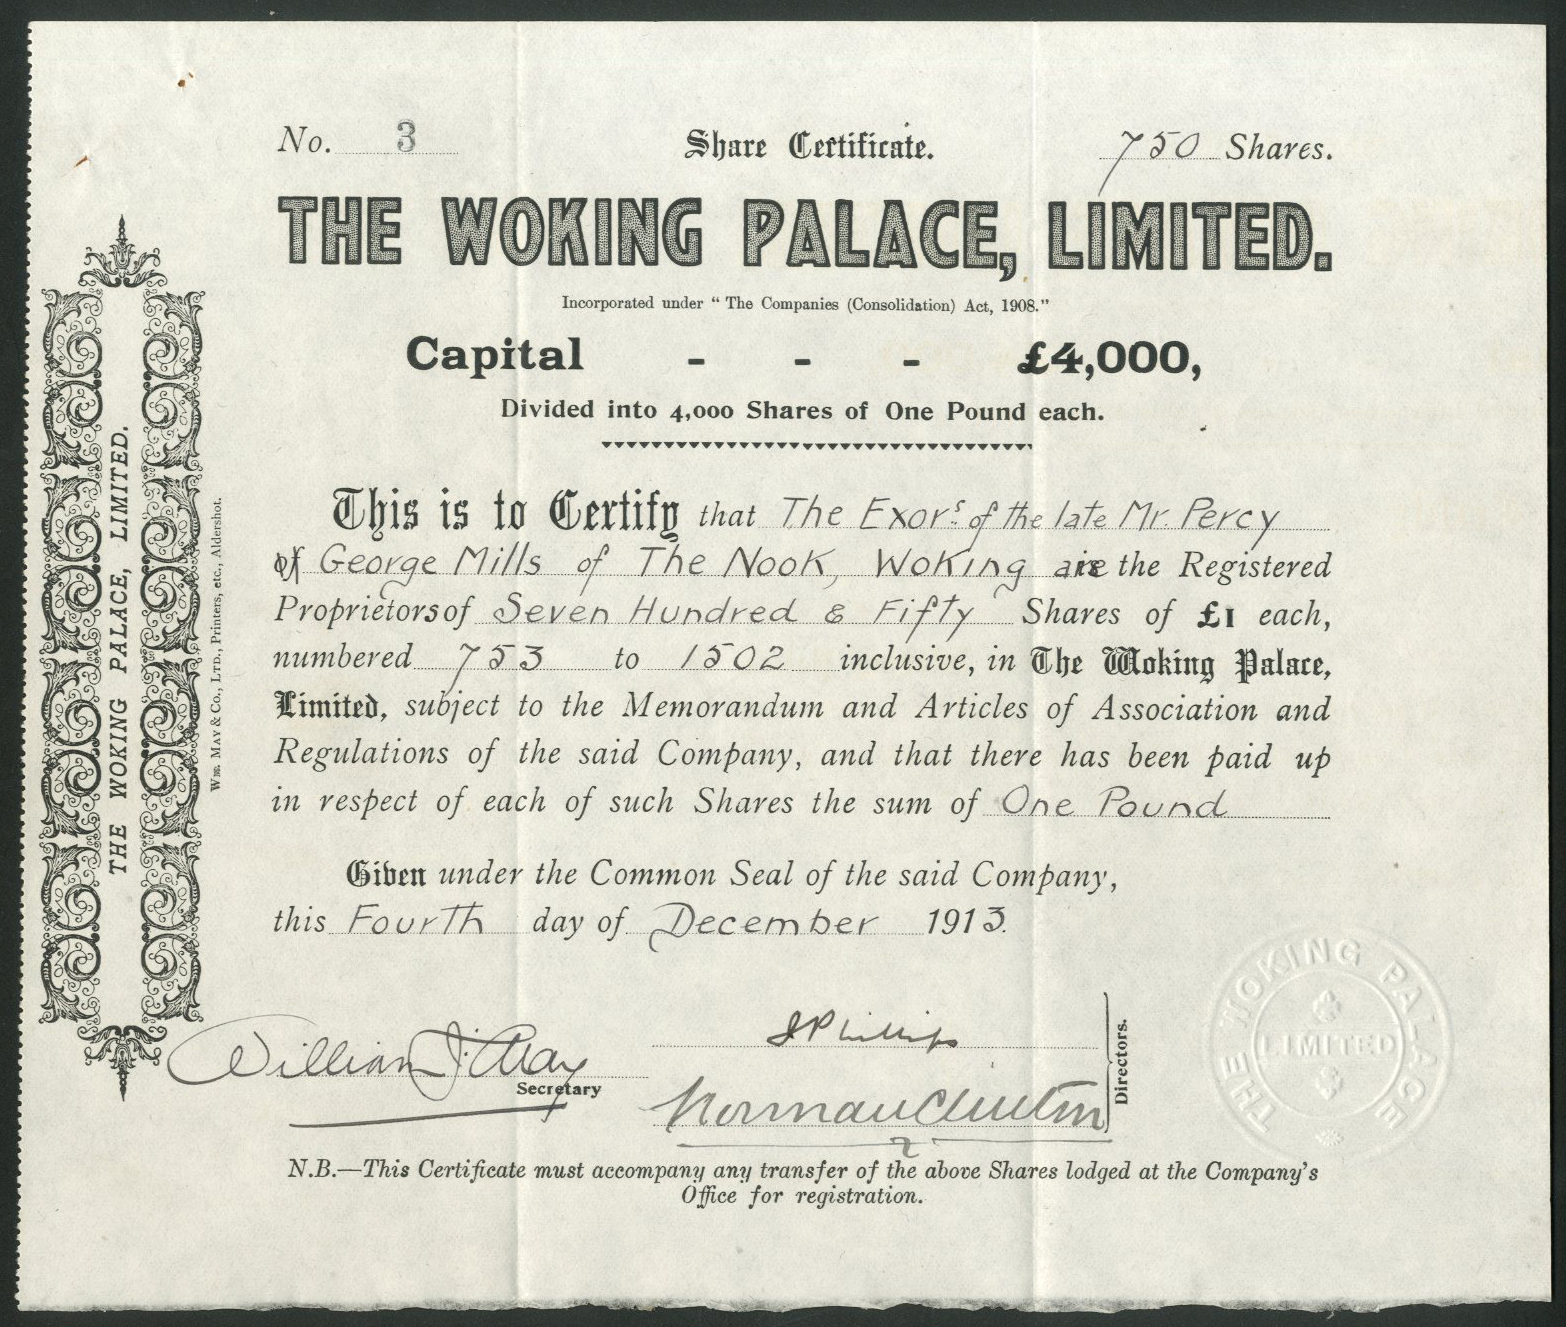 No. 3 Share Certificate. 750 Shares.
THE WOKING PALACE, LIMITED.
Incorporated under “ The Companies (Consolidation) Act, 1908.”
Capital - - - £4,000,
Divided into 4,000 Shares of One Pound each.
This is to Certify that The Exors. of the late Mr. Percy
of George Mills of The Nook, Woking are the Registered
Proprietors of Seven Hundred & Fifty Shares of £1 each,
numbered 753 to 1502 inclusive, in The Woking Palace,
Limited, subject to the Memorandum and Articles of Association and
Regulations of the said Company, and that there has been paid up
in respect of each of such Shares the sum of One Pound
Given under the Common Seal of the said Company,
this Fourth day of December 1913.
William J.
Secretary
J Phillips
Norman
Directors.
N.B.—This Certificate must accompany any transfer of the above Shares lodged at the Company's
Office for registration.
THE WOKING PALACE, LIMITED.
Wm. MAY & Co., LTD., Printers, etc., Aldershot.
THE WOKING PALACE
LIMITED